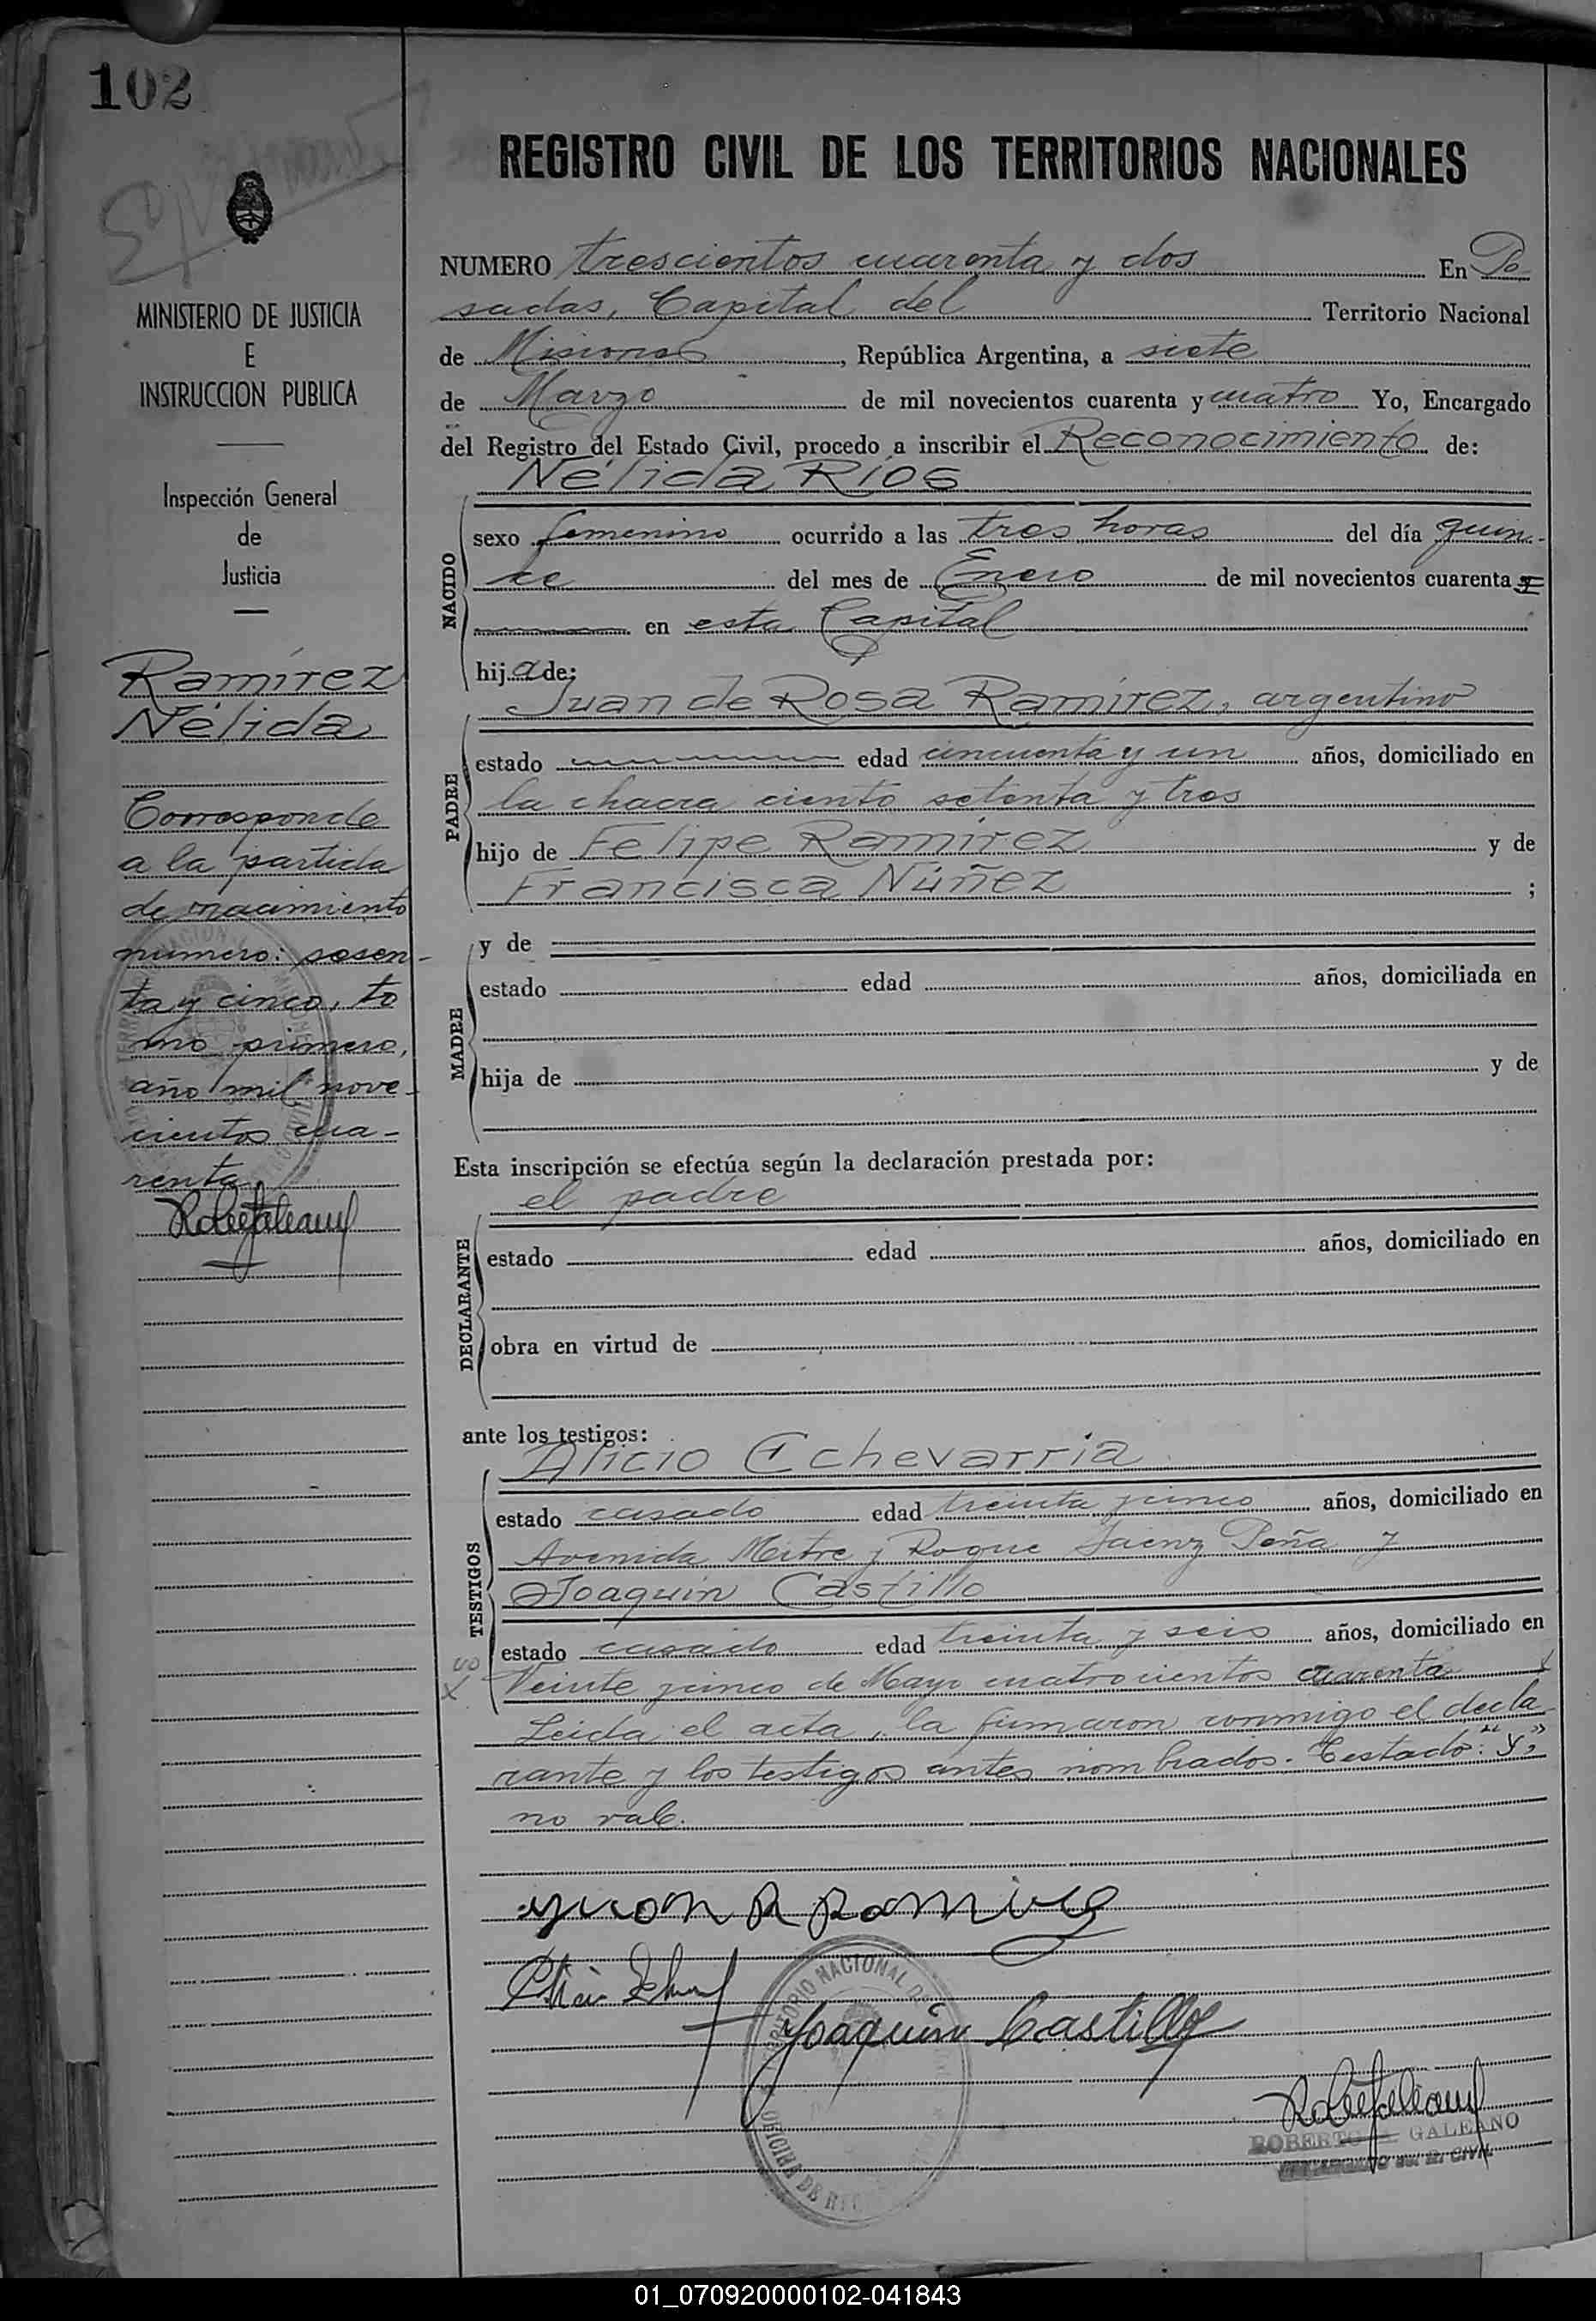 102
REGISTRO CIVIL DE LOS TERRITORIOS NACIONALES
MINISTERIO DE JUSTICIA
E
INSTRUCCION PUBLICA
Inspección General
de
Justicia
Ramírez
Nélida
Corresponde
a la partida
de nacimiento
numero: sesen-
ta y cinco, to
mo primero,
año mil nove-
cientos cua-
renta
NUMERO trescientos cuarenta y dos En Po
sadas, Capital del Territorio Nacional
de Misiones, República Argentina, a siete
de Marzo de mil novecientos cuarenta y cuatro Yo, Encargado
del Registro del Estado Civil, procedo a inscribir el Reconocimiento de:
Nélida Ríos
NACIDO
sexo femenino ocurrido a las tres horas del día quin-
ce del mes de Enero de mil novecientos cuarenta y
en esta Capital
hija de:
Juan de Rosa Ramírez, argentino
PADRE
estado edad cincuenta y un años, domiciliado en
la chacra ciento setenta y tres
hijo de Felipe Ramírez y de
Francisca Núñez ;
MADRE
y de
estado edad años, domiciliada en
hija de y de
Esta inscripción se efectúa según la declaración prestada por:
el padre
DECLARANTE
estado edad años, domiciliado en
obra en virtud de
ante los testigos:
Alicio Echevarria
TESTIGOS
estado casado edad treinta y cinco años, domiciliado en
Avenida Mitre y Roque Saenz Peña y
Joaquín Castillo
estado casado edad treinta y seis años, domiciliado en
Veinte y cinco de Mayo cuatrocientos cuarenta
Leida el acta, la firmaron conmigo el decla
rante y los testigos antes nombrados. Testado: "y",
no vale.
Juan R Ramirez
Joaquín Castillo
TERRITORIO NACIONAL DE
OFICINA DE
ROBERTO A. GALEANO
ENCARGADO DEL R. CIVIL
01_070920000102-041843